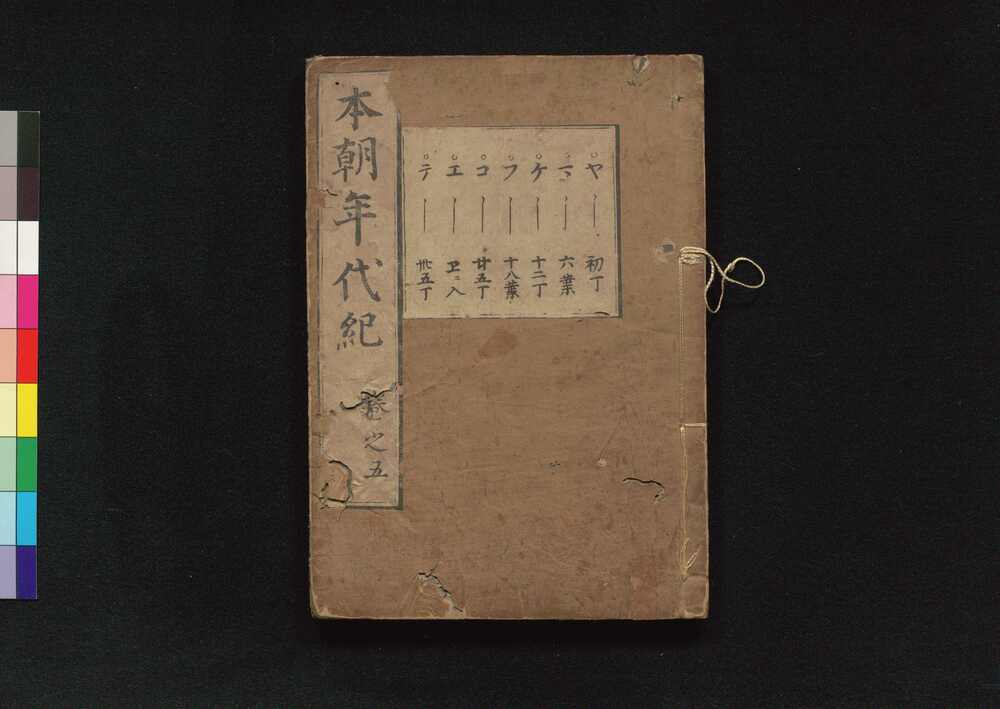 ○ヤ 初丁
○マ 六葉
○ケ 十二丁
○フ 十八葉
○コ 廿五丁
○エ
○テ 卅五丁
本朝年代紀 巻之五